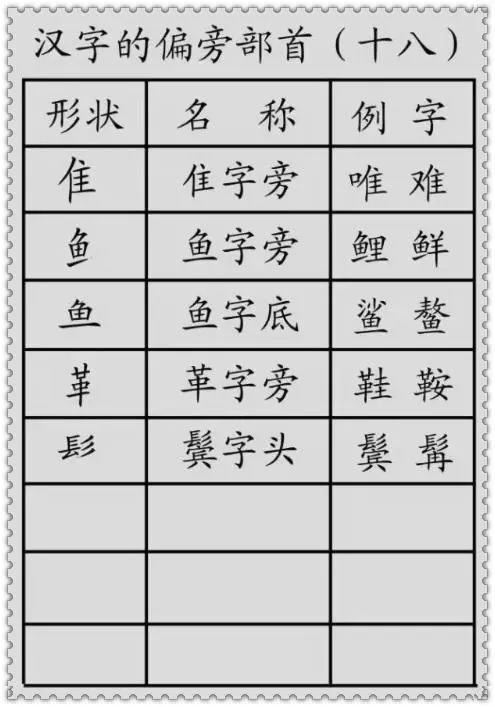 汉字的偏旁部首（十八）
形状 名 称 例 字
隹 隹字旁 唯 难
鱼 鱼字旁 鲤 鲜
鱼 鱼字底 鲨 鳌
革 革字旁 鞋 鞍
髟 鬓字头 鬓 髯